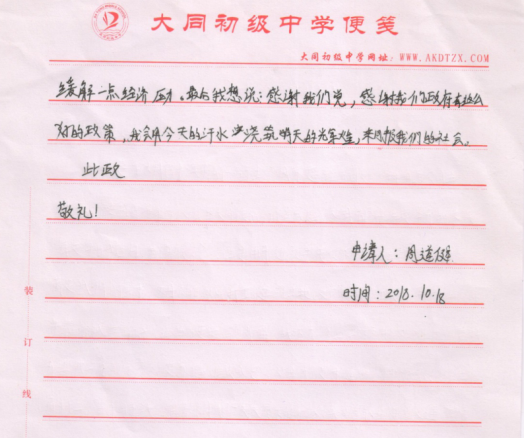 大同初级中学便笺
大同初级中学网址：WWW.AKDTZX.COM
缓解一点经济压力。最后我想说：感谢我们党，感谢我们政府有这么
好的政策，我会用今天的汗水浇筑明天的光辉，来回报我们的社会。
此致
敬礼！
申请人：周道
时间：2018.10.18
装
订
线